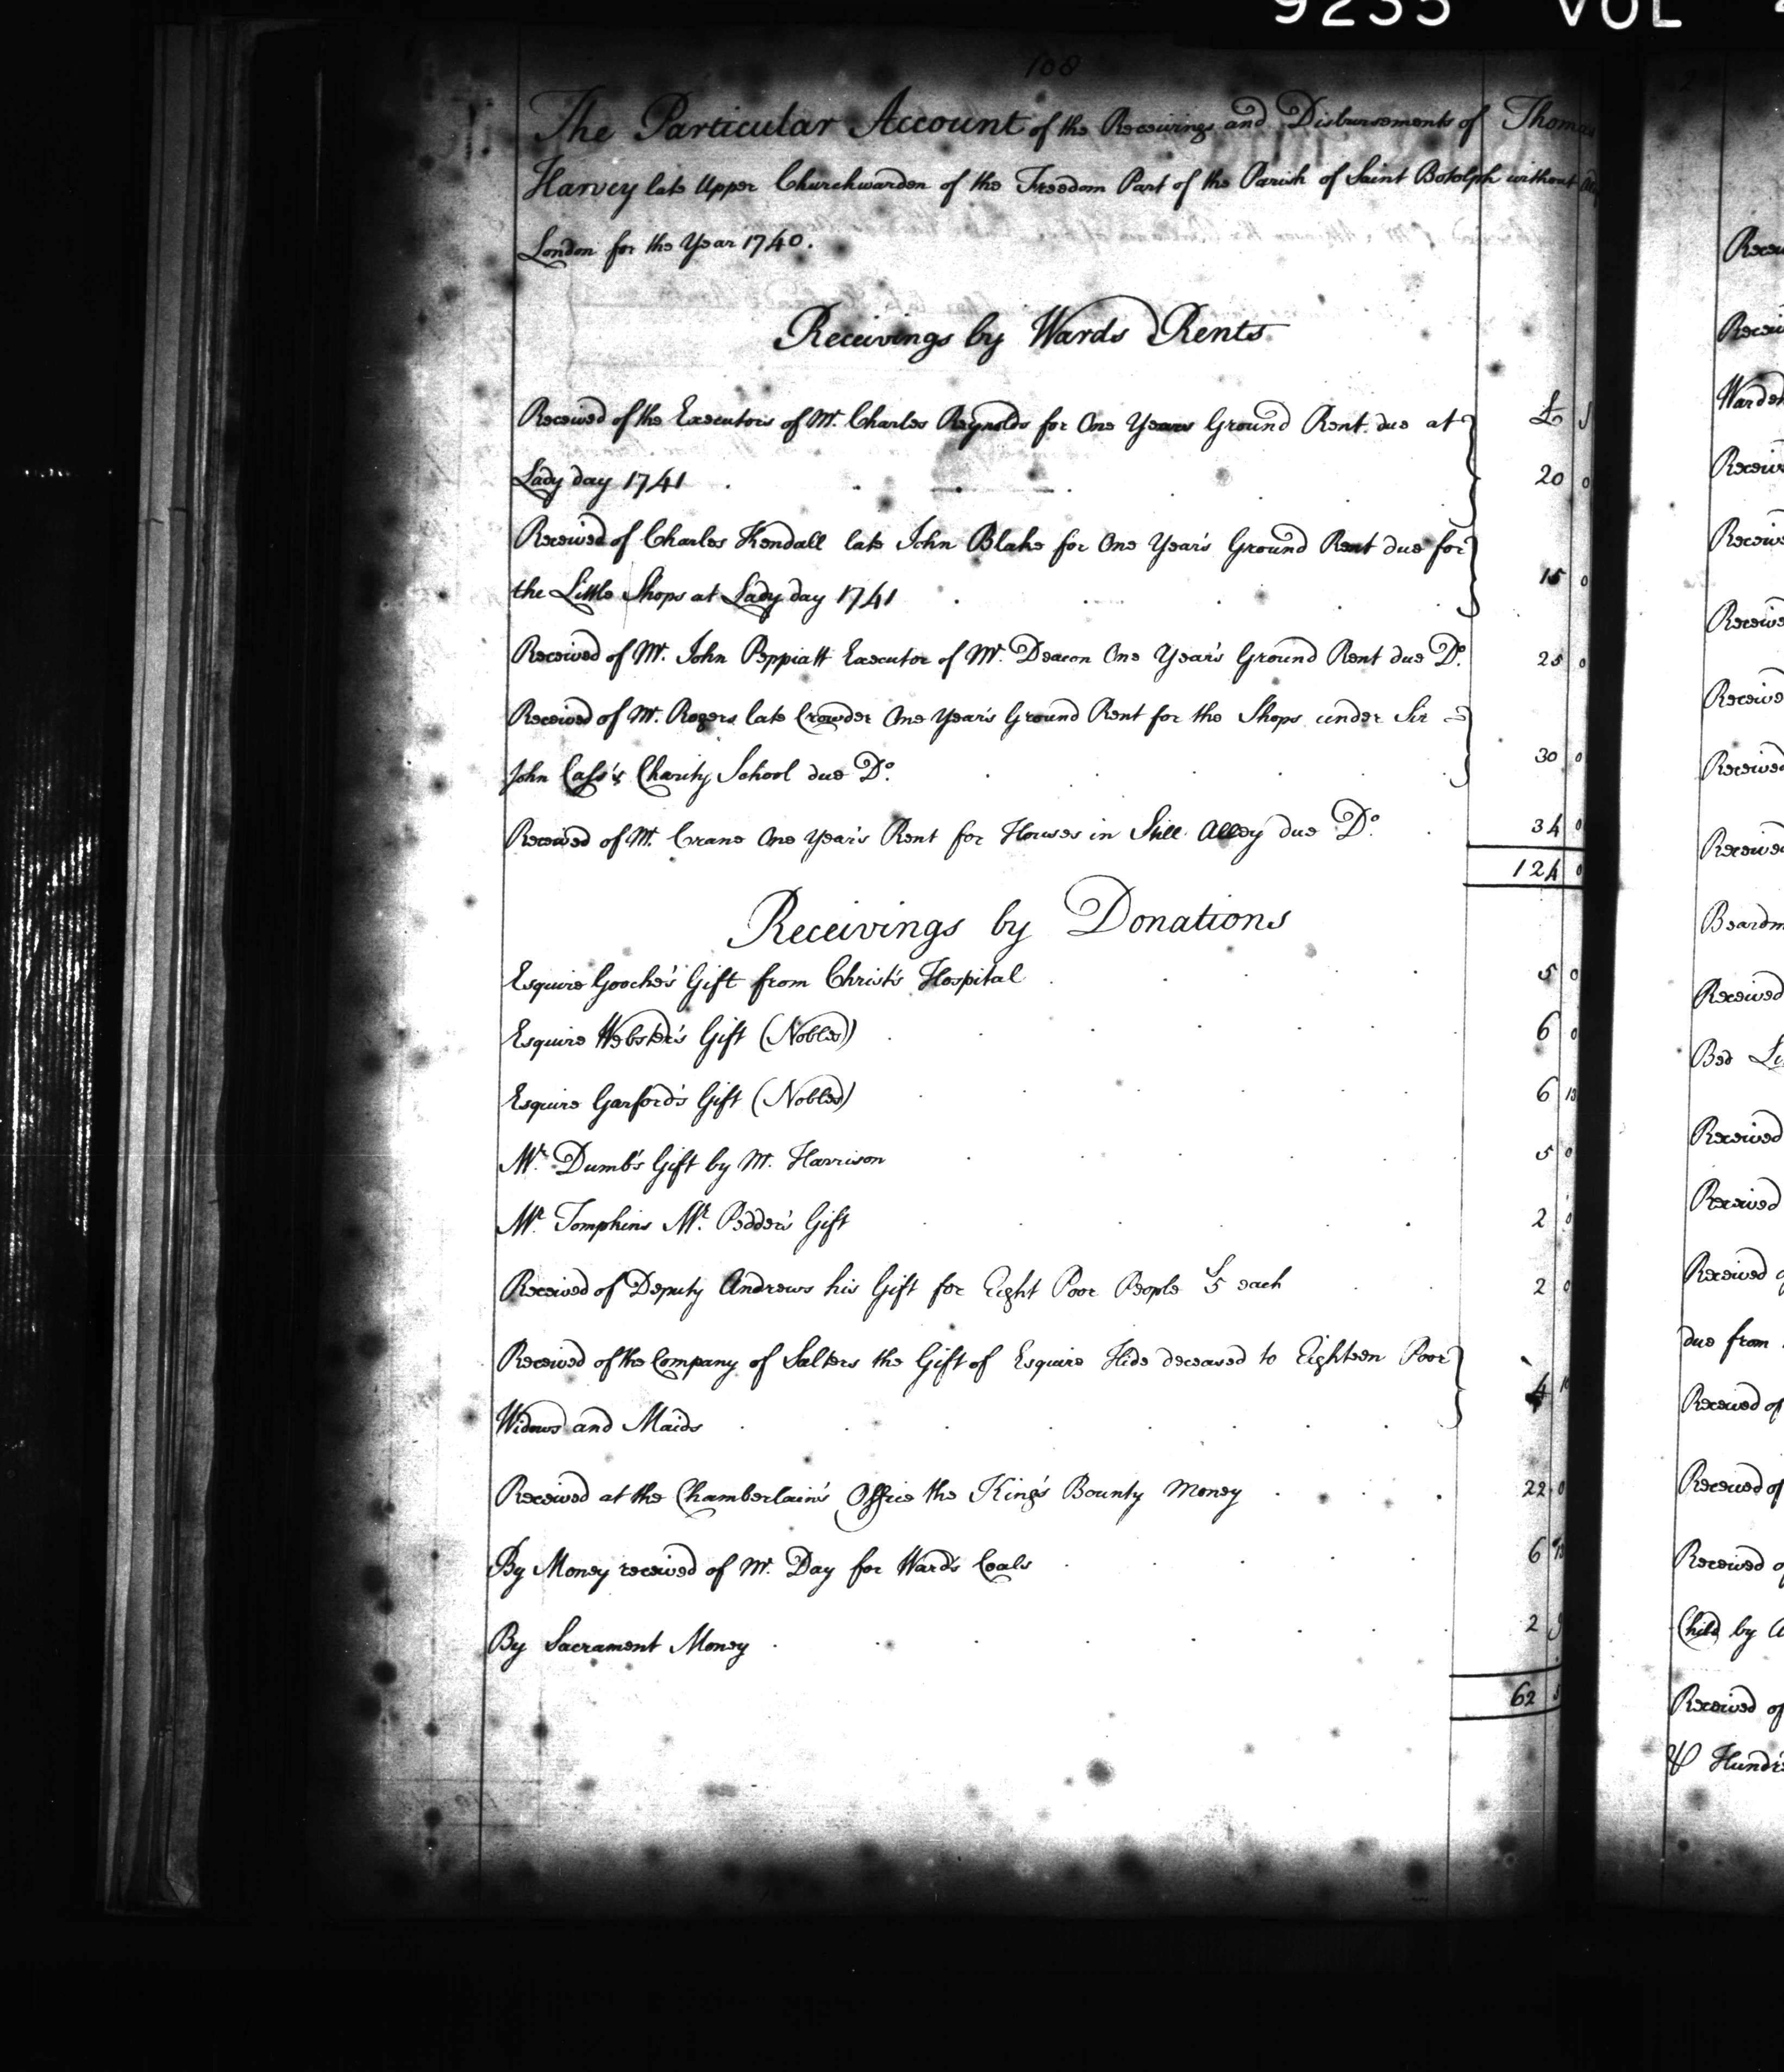 9235 VOL
108
The Particular Account of the Receivings and Disbursements of Thomas
Harvey late Upper Churchwarden of the Freedom Part of the Parish of Saint Botolph without
London for the Year 1740.
Receivings by Wards Rents
Received of the Executors of Mr. Charles Reynolds for One Years Ground Rent due at £ s
Lady day 1741 20 0
Received of Charles Kendall late John Blake for One Year's Ground Rent due for
the Little Shops at Lady day 1741 15 0
Received of Mr. John Peppiatt Executor of Mr. Deacon One Year's Ground Rent due Do. 25 0
Received of Mr. Rogers late Crowder One Year's Ground Rent for the Shops under Sir
John Cass's Charity School due Do. 30 0
Received of Mr. Crane One Year's Rent for Houses in Still Alley due Do. 34 0
124 0
Receivings by Donations
Esquire Gooche's Gift from Christ's Hospital 5 0
Esquire Webster's Gift (Nobles) 6 0
Esquire Garford's Gift (Nobles) 6 13
Mr. Dumb's Gift by Mr. Harrison 5 0
Mr. Tompkins Mr. Pedder's Gift 2 0
Received of Deputy Andrews his Gift for Eight Poor People 5s each 2 0
Received of the Company of Salters the Gift of Esquire Hide deceased to Eighteen Poor
Widows and Maids 4 10
Received at the Chamberlain's Office the King's Bounty Money 22 0
By Money received of Mr. Day for Ward's Coals 6
By Sacrament Money 2
62
Received
Received
Received
Received
Received
Received
Received
Received
Received
Bed
Received
Received
Received
due from
Received of
Received of
Received
Child by
Received of